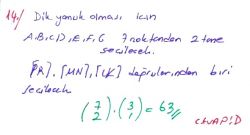 14./ Dik yamuk olması için
A, B, C, D, E, F, G 7 noktadan 2 tane
seçilecek.
[PR], [MN], [LK] doğrularından biri
seçilecek
(7 2) . (3 1) = 63 //
CEVAP: D